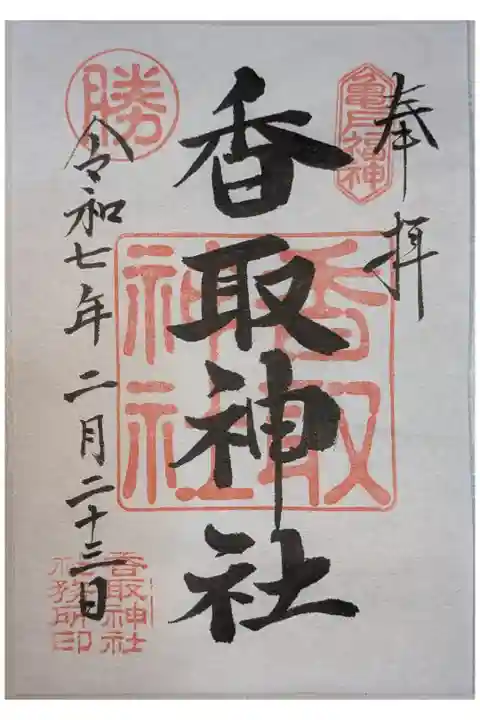 奉拝
亀戸福神
香取神社
香取神社
勝
令和七年二月二十三日
香取神社
社務所印